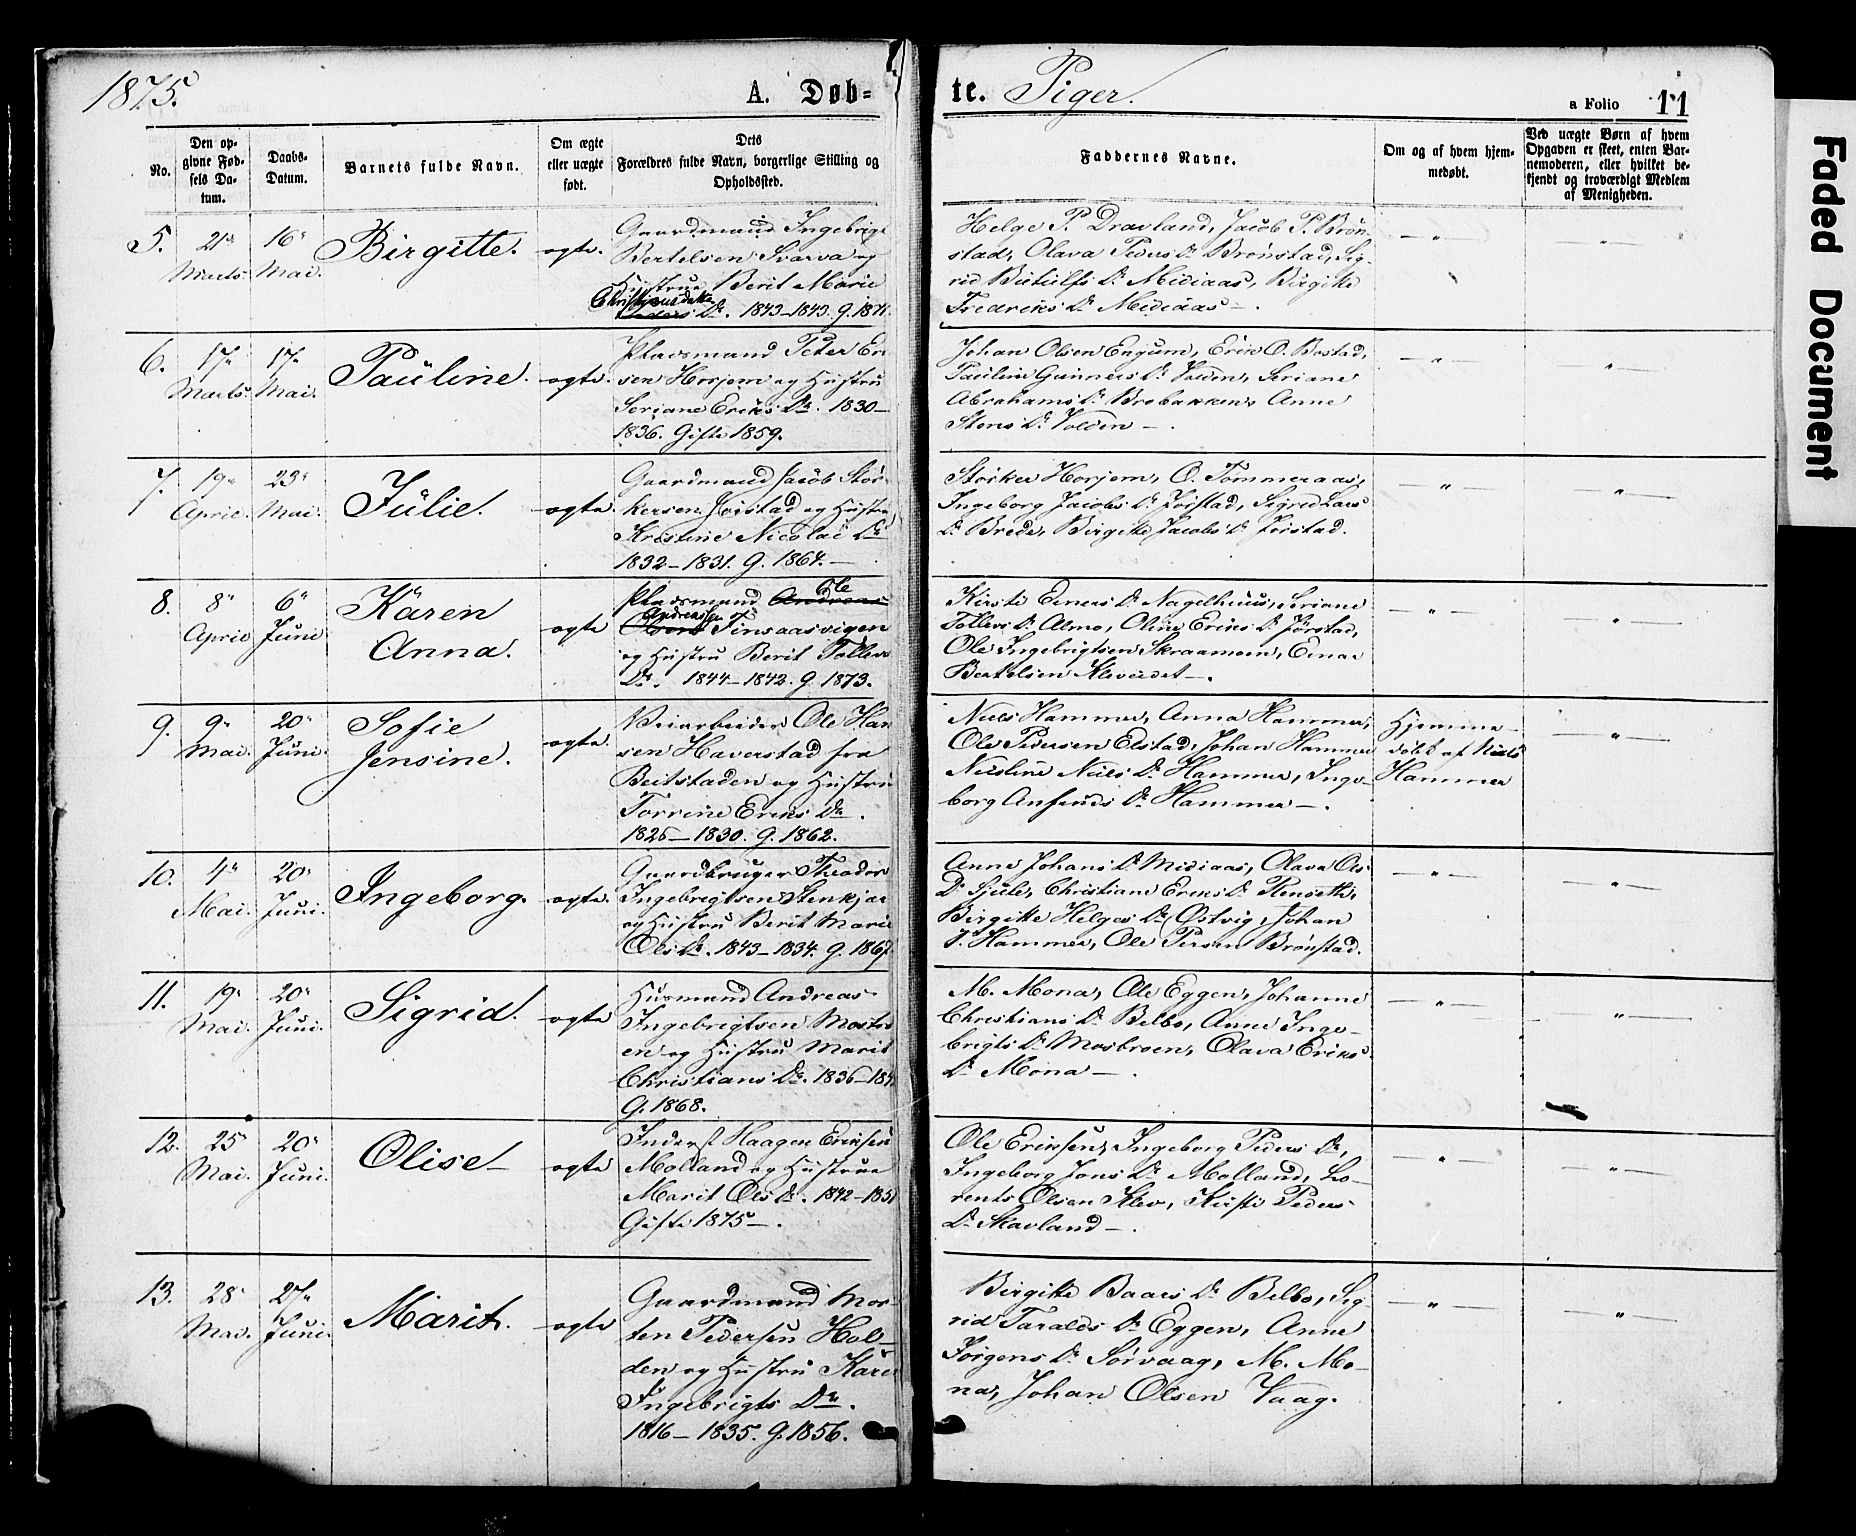 1875.
A. Døb=
te. Piger.
a Folio 11
No.
Den op-
givne Fød-
sels Da-
tum.
Daabs-
Datum.
Barnets fulde Navn.
Om ægte
eller uægte
født.
Dets
Forældres fulde Navn, borgerlige Stilling og
Opholdssted.
Faddernes Navne.
Om og af hvem hjem-
medøbt.
Ved uægte Børn af hvem
Opgaven er skeet, enten Bar-
nemoderen, eller hvilket be-
kjendt og troværdigt Medlem
af Menigheden.
5.
21"
Marts.
16"
Mai.
Birgitte.
ægte.
Gaardmand Ingebrigt
Bertelsen Svarva og
Hustrue Berit Marie
Christiansdatter
Peders Dr. 1843-1843. G. 1871.
Helge P. Dravland, Jacob P. Brøn-
stad, Olava Peders Dr Brønstad, Sig-
rid Dr Midiaas, Birgitte
Fredriks Dr Midiaas -.
6.
17"
Marts.
17"
Mai.
Pauline.
ægte.
Pladsmand Peter Erik
sen Horjem og Hustru
Seriane Eriks Dr. 1830-
1836. Gifte 1859.
Johan Olsen Engum, Erik O. Bostad,
Pauline Gunners Dr Volden, Seriane
Abrahams Dr Brobakken, Anne
Stens Dr Volden -.
7.
19"
April.
23"
Mai.
Julie.
ægte
Gaardmand Jacob Stor-
kersen Jørstad og Hustru
Kristine Nicolai Dr
1832-1831. G. 1864. -
Storker Horjem, O. Tømmeraas,
Ingeborg Jacobs Dr Jørstad, Sigrid Lars
Dr Brede, Birgitte Jacobs Dr Jørstad.
8.
8"
April
6"
Juni
Karen
Anna.
ægte
Ole
Pladsmand Andreas
Andreassen
Olsen Finsaasvigen
og Hustru Berit Tollevs
Dr. 1844-1842. G. 1873.
Kirsti Einers Dr Nagelhuus, Seriane
Tollevs Dr Almo, Oline Eriks Dr Jørstad,
Ole Ingebrigtsen Skraamoen, Einar
Bertelsen Kleveidet -.
9.
9"
Mai.
20"
Juni.
Sofie
Jensine.
ægte.
Veiarbeider Ole Han
sen Haverstad fra
Beitstaden og Hustru
Torrine Eriks Dr.
1826-1830. G. 1862.
Niels Hammer, Anna Hammer,
Ole Pedersen Elstad, Johan Hammer
Nilsline Niels Dr Hammer, Inge-
borg Dr Hammer -.
Hjemme-
døbt af Niels
Hammer
10.
4"
Mai.
20"
Juni.
Ingeborg.
ægte.
Gaardbruger Theodor
Ingebrigtsen Stenkjær
og Hustru Berit Marie
Ols Dr. 1843-1834. G. 1867.
Anne Johans Dr Midiaas, Olava Ols
Dr Sjule, Christiane Eriks Dr Renseth,
Birgitte Helges Dr Østvig, Johan
J. Hammer, Ole Persen Brønstad.
11.
19"
Mai.
20"
Juni.
Sigrid.
ægte
Husmand Andreas
Ingebrigtsen Mosbro
en og Hustru Marit
Christians Dr. 1836-184
G. 1868.
M. Mona, Ole Eggen, Johanne
Christians Dr Belbo, Anne Inge-
brigts Dr Mosbroen, Olava Eriks
Dr Mona -.
12.
25"
Mai.
20"
Juni.
Olise -
ægte
Inderst Haagen Eriksen
Molland og Hustrue
Marit Ols Dr. 1842-1851
Gifte 1875 -.
Ole Eriksen, Ingeborg Peders Dr,
Ingeborg Jons Dr Molland, Lo-
rents Olsen Klev, Kirsti Peders
Dr Skavland -
13.
28"
Mai.
27"
Juni.
Marit.
ægte
Gaardmand Mor-
ten Pedersen Hol-
den og Hustru Karen
Ingebrigts Dr.
1816-1835. G. 1856.
Birgitte Baars Dr Belbo, Sig-
rid Taralds Dr Eggen, Anne
Jørgens Dr Sørvaag, M. Mo-
na, Johan Olsen Vaag.
Faded Document